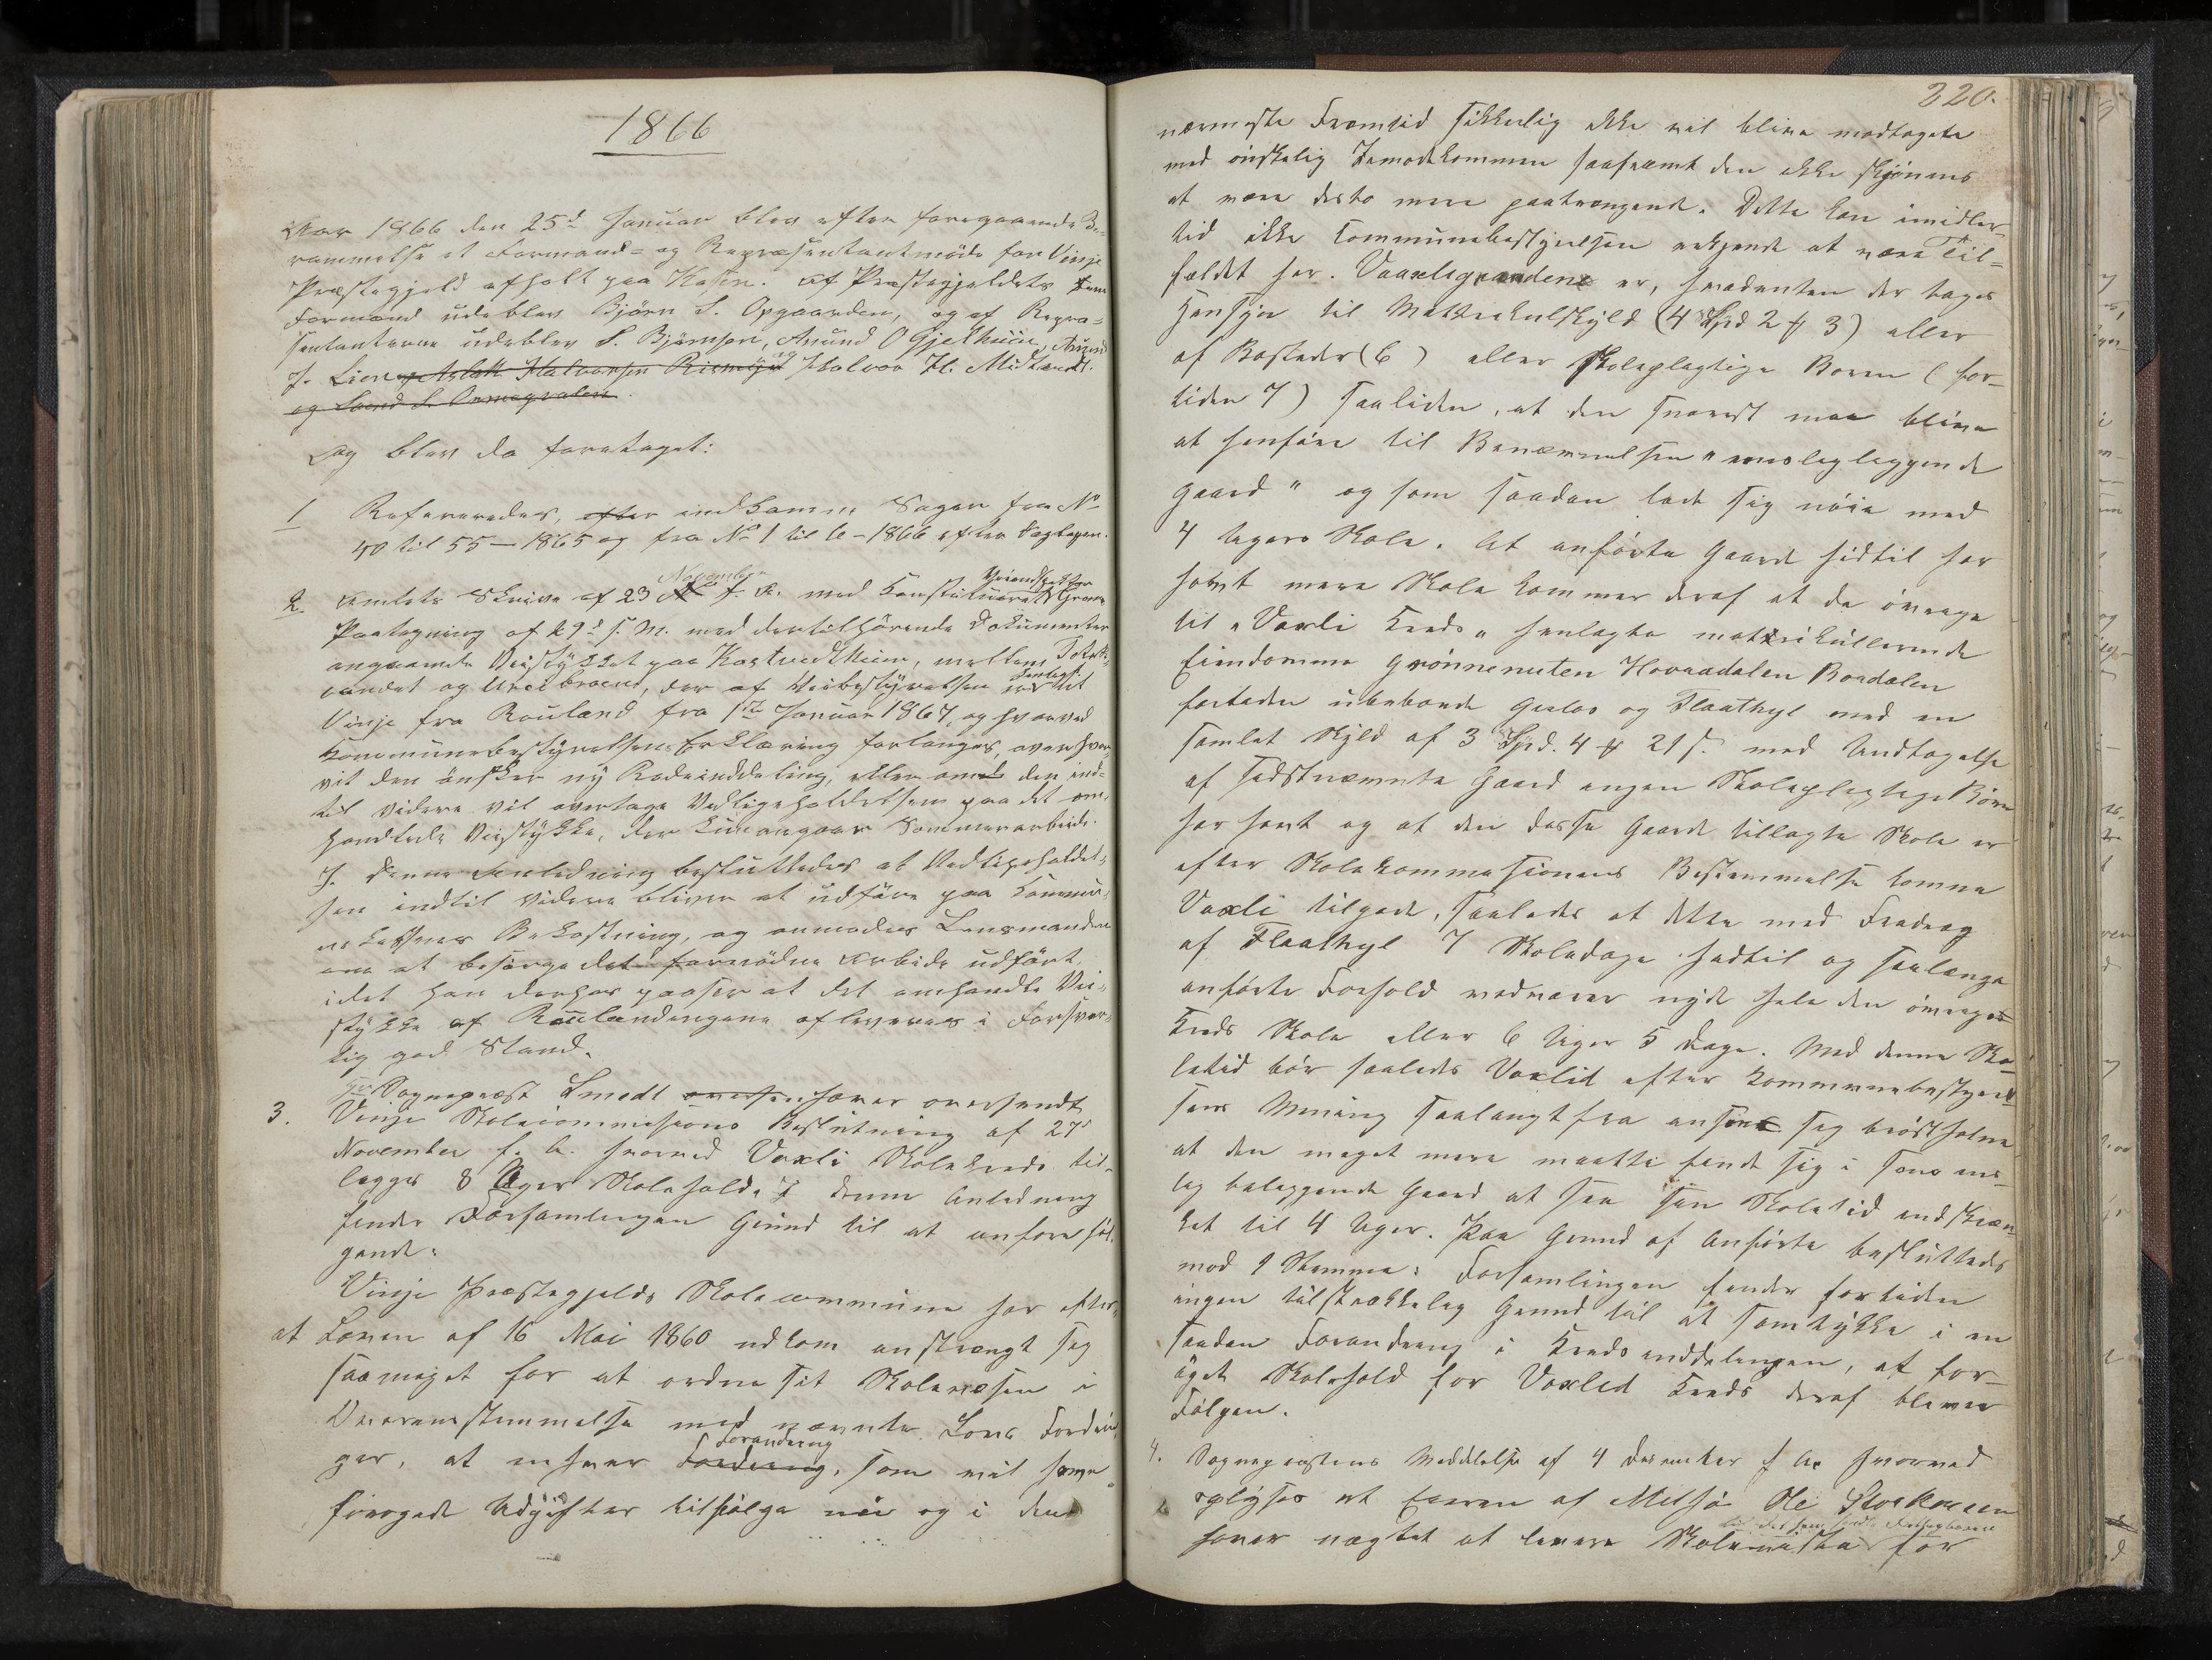 1866
Aar 1866 den 25d Januar blev efter foregaaende Be-
rammelse et Formand- og Repræsentantmöde for Vinje
Præstegjeld afholt paa Kosin. Af Præstegjeldets
Formænd udeblev Björn S. Opgaarden, og af Repræ-
sentanterne udeblev S. Björnsen, Anund O Gjelhuus, Anund
J. Lien og Aslak Halvorsen og Halvor H. Midtund.
og Svend S.
Og blev da foretaget:
1 Refereredes, efter indkomne Sager fra No
40 til 55 - 1865 og fra No 1 til 6 - 1866 efter Dagbogen.
November Veiinspektør
2. Amtets Skrive af 23 f. A. med Constitueret
Paategning af 29d s. M. med dertilhörende Dokumenter
angaaende Veistykket paa Kostveitheien, mellem Totak-
vandet og broend, der af Veibestyrelsen er henlagt til
Vinje fra Rauland fra 1ste Januar 1867, og hvorved
Kommunebestyrelsens Erklæring forlanges, over hvor-
vit den önsker ny Rodeinddeling, eller om den ind-
til videre vil overtage Vedligeholdelsen paa det om-
handlede Veistykke, der kun angaar Sommerarbeide.
I denne Anledning besluttedes at Vedligeholdel-
sen indtil videre bliver at udföre paa Kommu-
nekassens Bekostning, og anmodes Lensmanden
om at besörge det fornödne Arbeide udfört,
idet han derhos paaser at det omhandlte Vei-
stykke af Raulendingene afleveres i Forsvar-
lig god Stand.
Hr Sognepræst Smedt oversen haver oversendt
3. Vinje Skolecommisions Beslutning af 27d
November f. A. hvorved Voxli Skolekreds til-
lægges 8 Uger Skolehold. I denne Anledning
finder Forsamlingen Grund til at anföre föl-
gende:
Vinje Præstegjelds Skolecommune har efter
at Loven af 16 Mai 1860 udkom anstrengt sig
saameget for at ordne sit Skolevæsen i
Overensstemmelse med nævnte Lovs Fordrin-
Forandring
ger, at enhver Fordring, som vil have
forögede Udgifter tilfölge nu og i den
220.
nærmeste Fremtid sikkerlig ikke vil blive modtagete
med önskelig Imödekommen saafremt den ikke skjönnes
at være desto mere paatrængende. Dette kan imidler-
tid ikke Communebestyrelsen erkjende at være Til-
fældet her. Vaaxligaardene er, hvadenten der tages
Hensyn til Matrikulskyld (4 Spd 2 # 3) eller
af Bosteder (6) eller Skolepligtige Born (for-
tiden 7) saaliden, at den snarest maa blive
at henföre til Benævnelsen "ensligliggende
Gaard" og som saadan lade sig nöie med
4 Ugers Skole. At anförte Gaard hidtil har
havt mere Skole kommer deraf at de övrige
til "Voxli Kreds" henlagte matrikullerede
Eiendomme Grönnenuten Hovradalen Bordalen
fortiden ubeboede og Flaathyl med en
samlet Skyld af 3 Spd. 4 # 21 s. med Undtagelse
af sidstnævnte Gaard ingen Skolepligtige Börn
har havt og at den disse Gaarde tillagte Skole er
efter Skolekommisionens Bestemmelse komne
Voxli tilgode, saaledes at dette med Fradrag
af Flaathyl 7 Skoledage hidtil og saalænge
anförte Forhold vedvarer nyde hele den övrige
Kreds Skole eller 6 Uger 5 Dage. Med denne Sko-
letid bör saaledes Voxlid efter Kommunebestyrel-
sens Mening saalangtfra ansee sig bröstholden
at den meget mere maatte finde sig i som ens-
lig beliggende Gaard at see sin Skoletid indskræn-
ket til 4 Uger. Paa Grund af Anförte besluttedes
mod 1 Stemme: Forsamlingen finder fortiden
ingen tilstrækkelig Grund til at samtykke i en
saadan Forandring i Kredsinddelingen, at for-
öget Skolehold for Voxlid Kreds deraf bliver
Fölgen.
4. Sognepræstens Meddelelse af 4 December f. A. hvorved
oplyses at Eieren af Metsö Ole
haver nægtet at levere Skolemister for